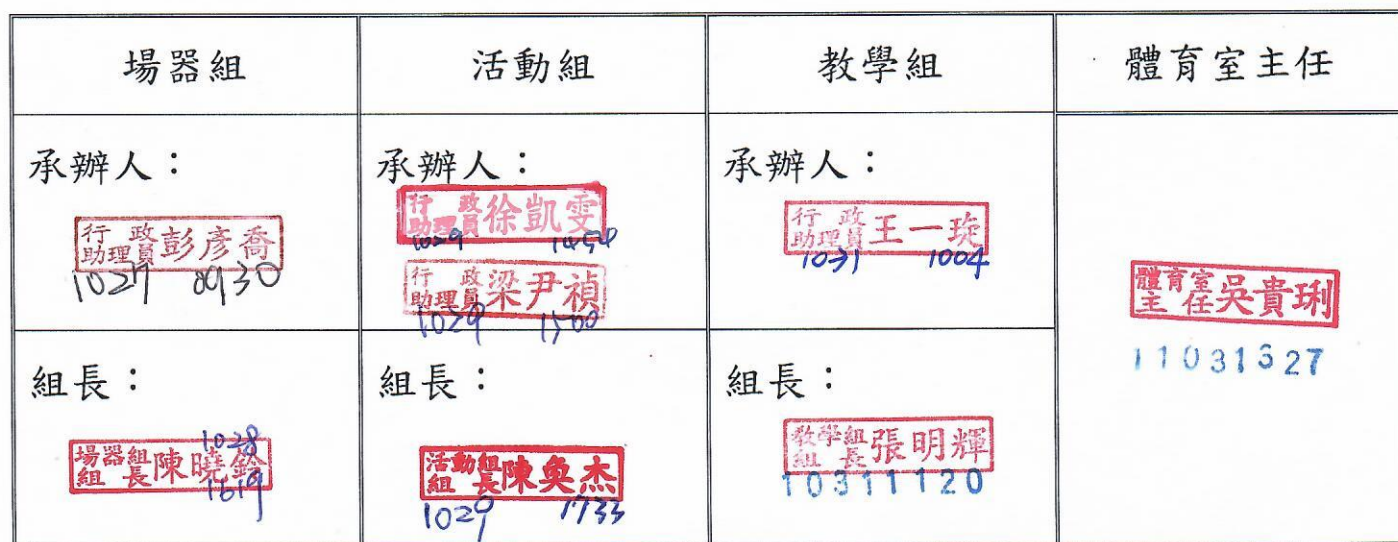 場器組
活動組
教學組
體育室主任
承辦人：
行政助理員 彭彥喬
1027 0930
承辦人：
行政助理員 徐凱雯
1029 1454
行政助理員 梁尹禎
1029 1500
承辦人：
行政助理員 王一琁
1031 1004
體育室主任 吳貴琍
11031627
組長：
場器組組長 陳曉鈴
1028
1619
組長：
活動組組長 陳奐杰
1029 1733
組長：
教學組組長 張明輝
10311120